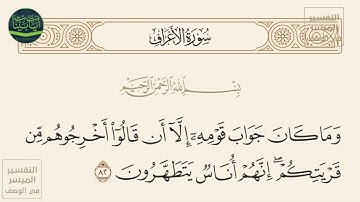 سُورَةُ الأَعْرَافِ
بِسْمِ اللَّهِ الرَّحْمَٰنِ الرَّحِيمِ
وَمَا كَانَ جَوَابَ قَوْمِهِۦٓ إِلَّآ أَن قَالُوٓا۟ أَخْرِجُوهُم مِّن
قَرْيَتِكُمْ ۖ إِنَّهُمْ أُنَاسٌ يَتَطَهَّرُونَ ٨٢
التفسير
الميسر
في الوصف
التفسير
الميسر
في الوصف